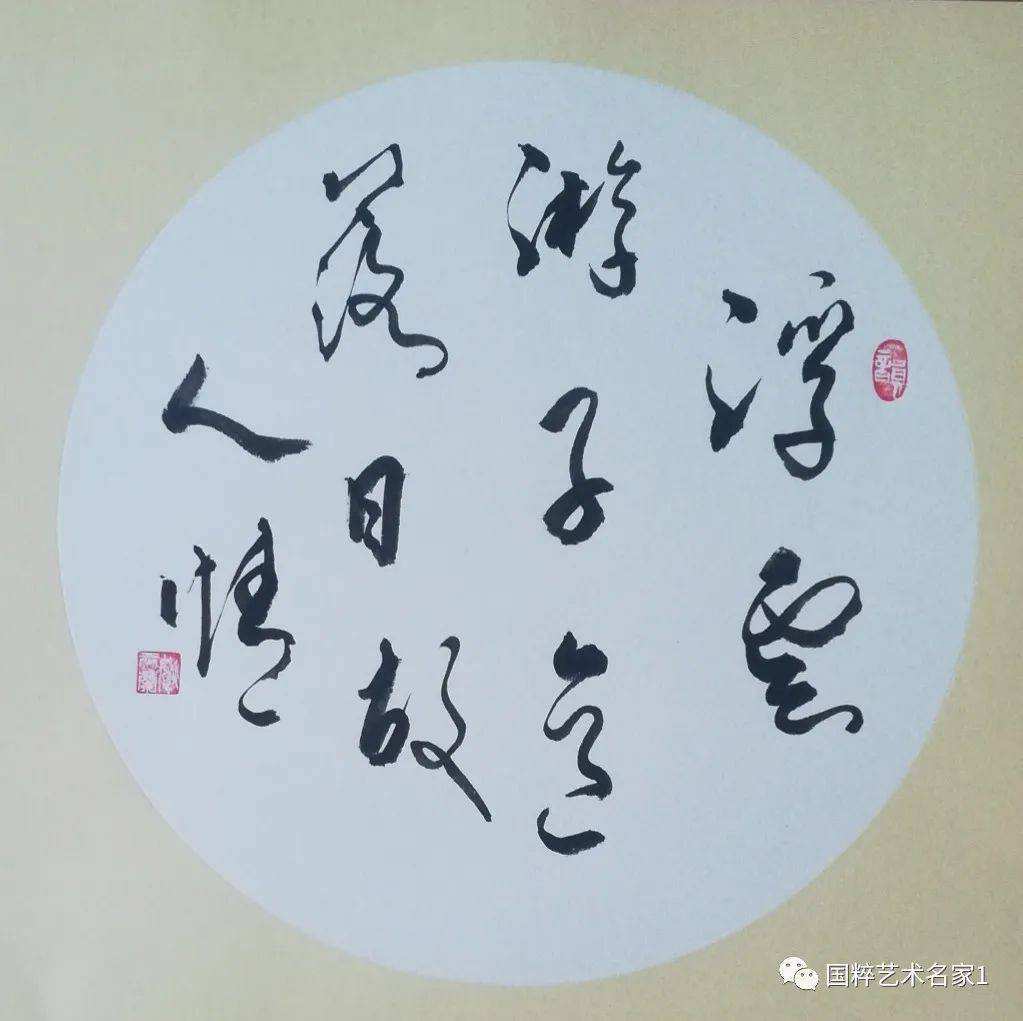 浮雲
游子意
落日故
人情
国粹艺术名家1